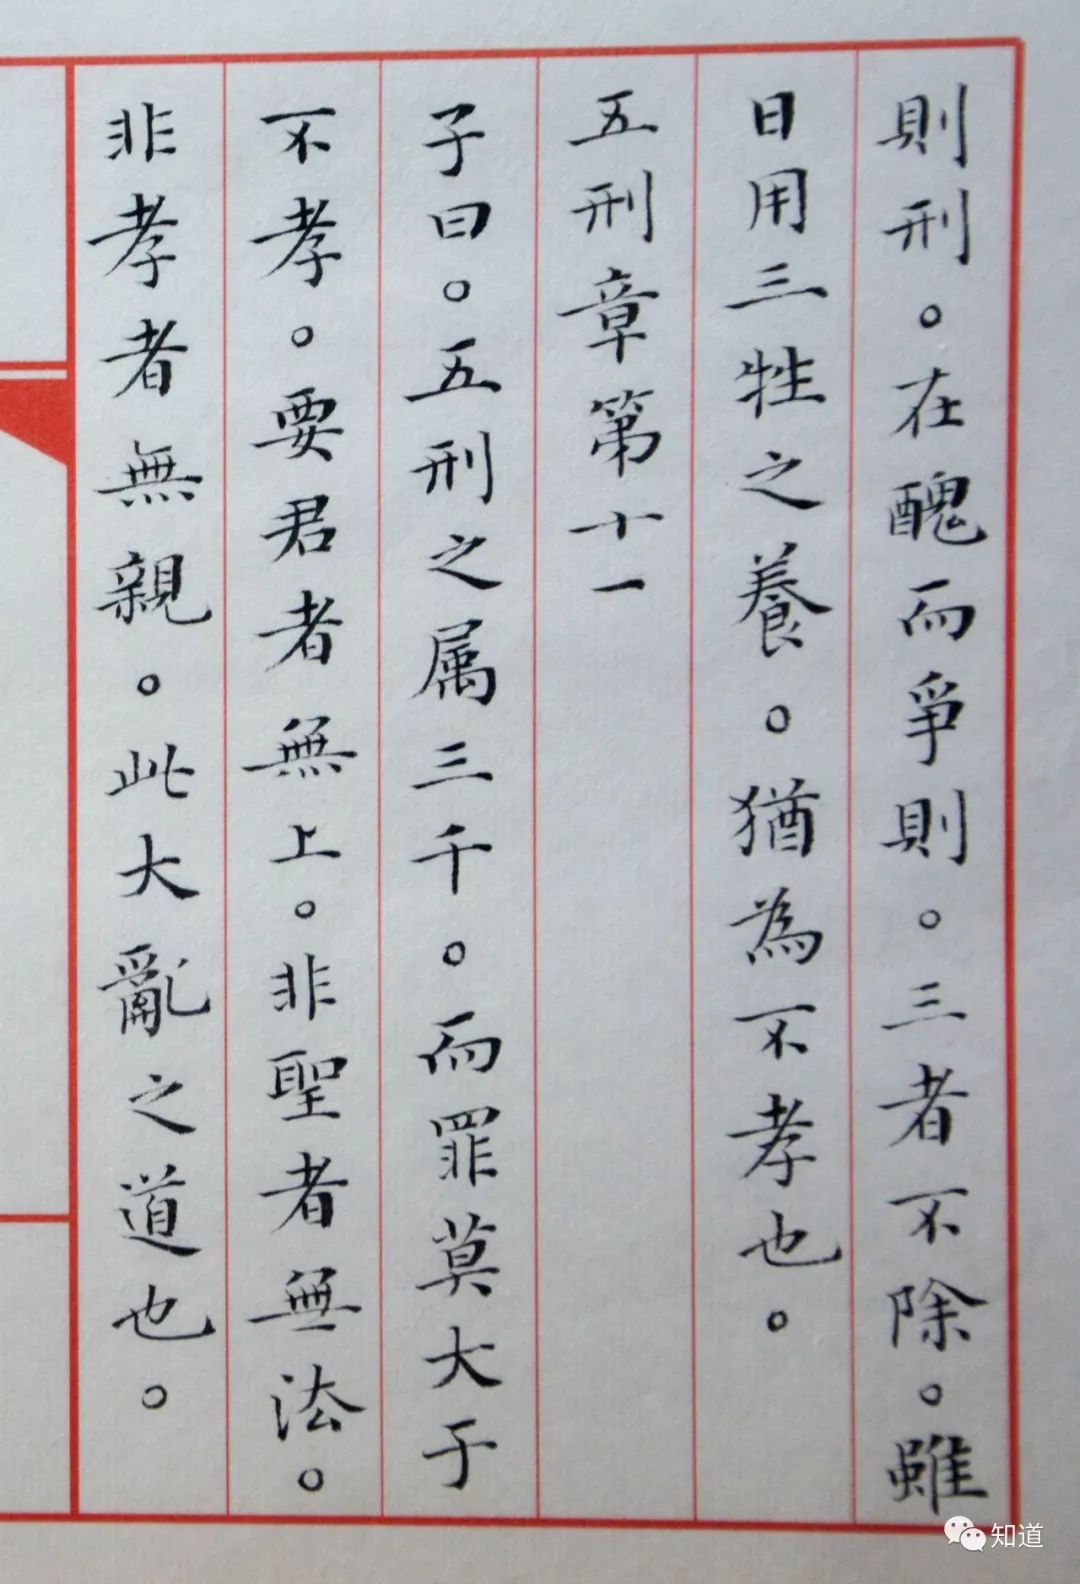 則刑。在醜而爭則。三者不除。雖
日用三牲之養。猶為不孝也。
五刑章第十一
子曰。五刑之属三千。而罪莫大于
不孝。要君者無上。非聖者無法。
非孝者無親。此大亂之道也。
知道